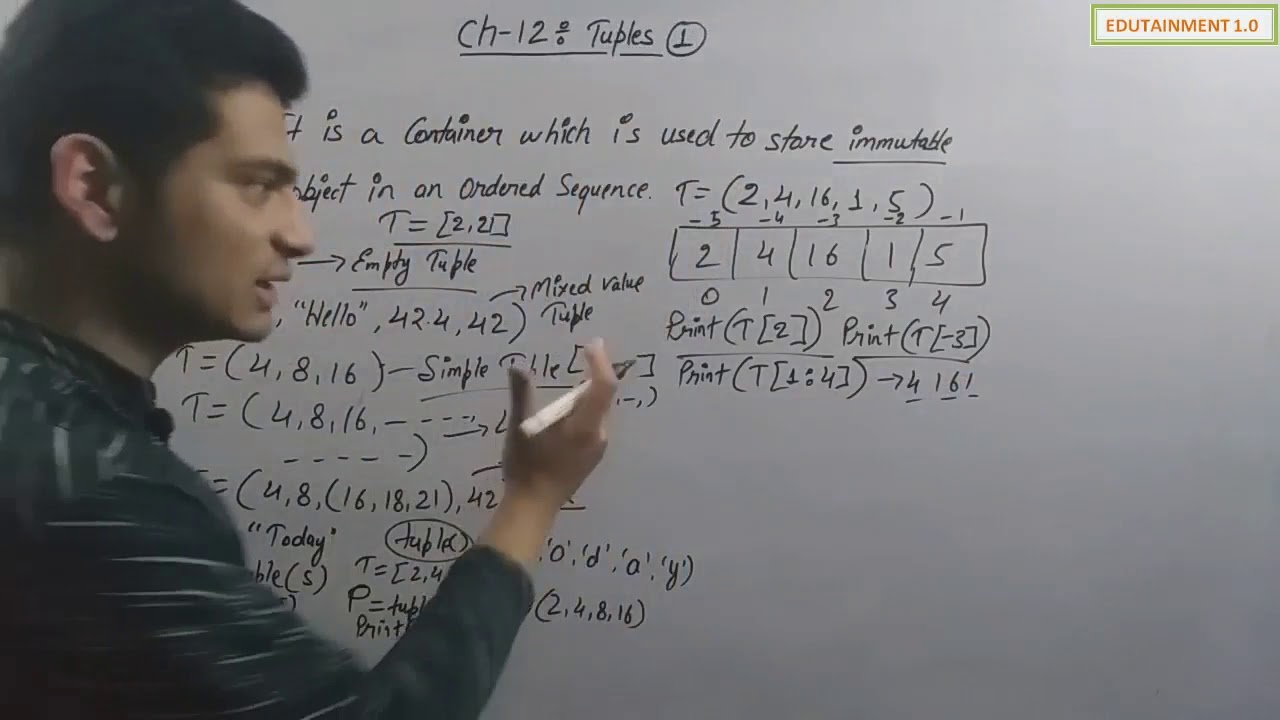 EDUTAINMENT 1.0
Ch-12 : Tuples ①
It is a Container which is used to store immutable
object in an Ordered Sequence.
T = [2,2]
→ Empty Tuple
, "Hello", 42.4, 42) → Mixed value
Tuple
T = (4, 8, 16) - Simple
T = (4, 8, 16, - - - -
- - - - -)
= (4, 8, (16, 18, 21), 42
"Today"
tuple()
'o', 'd', 'a', 'y')
(s)
T = [2,4
P = tupl
(2,4,8,16)
Print
T = (2, 4, 16, 1, 5)
-5 -4 -3 -2 -1
2 4 16 1 5
0 1 2 3 4
Print(T[2]) Print(T[-3])
Print(T[1:4]) → 4 16 1